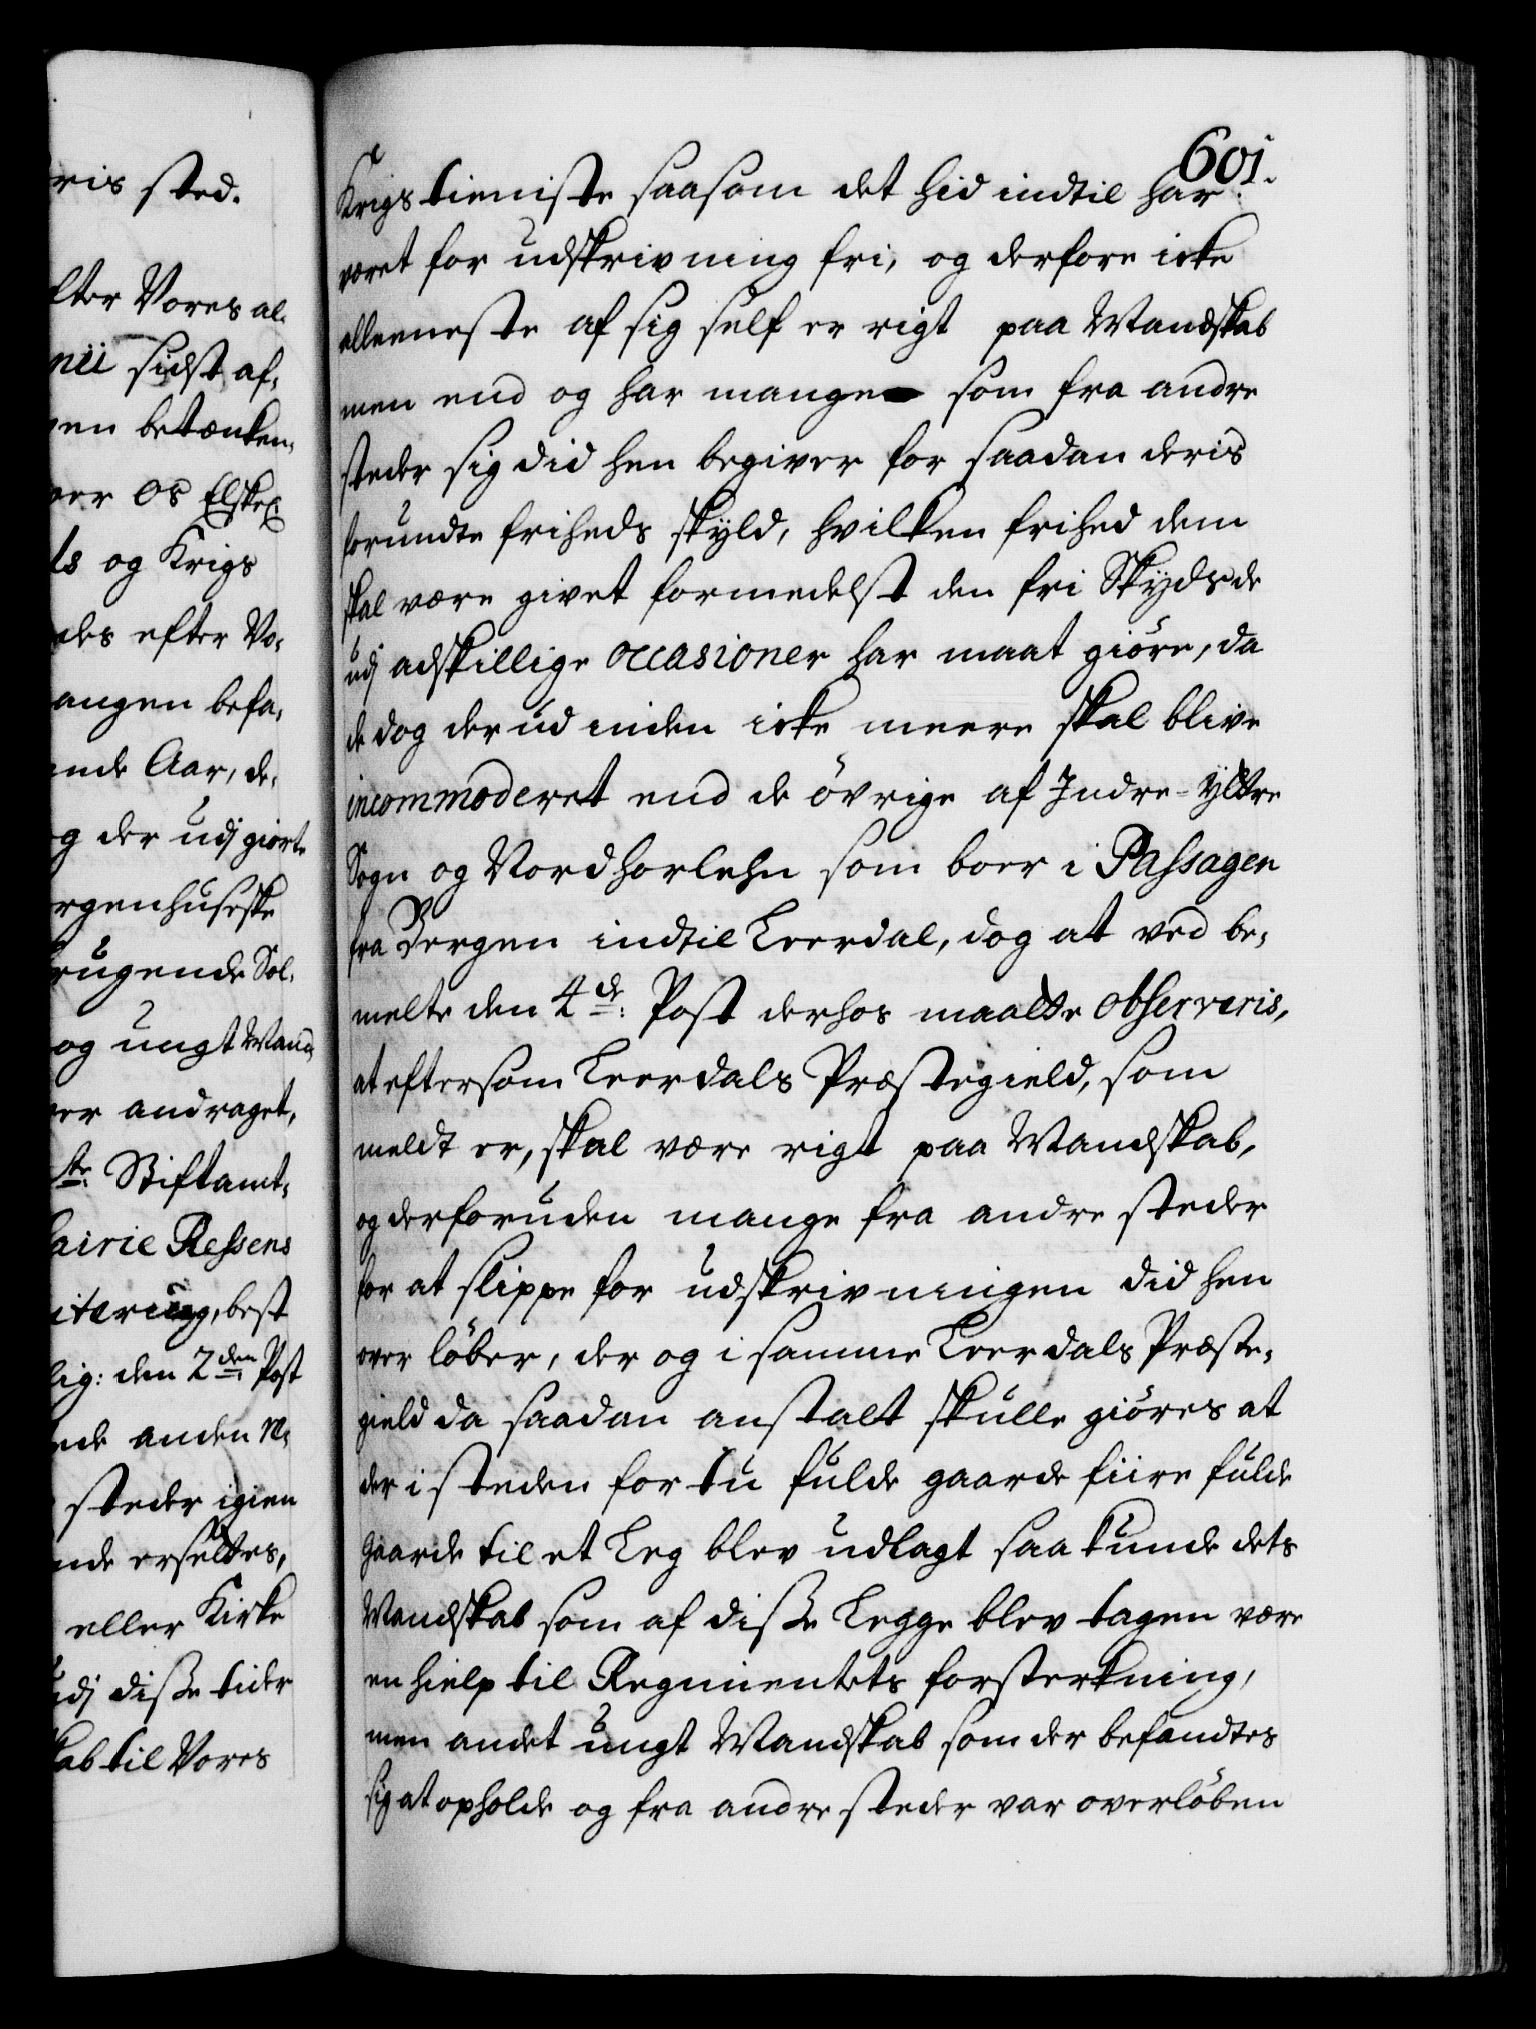 ris sted.
fter Vores al-
nii sidst af-
en betænken-
er os Elskel:
ts og Krigs
des efter Vo-
angen befa-
nde Aar, de-
g der udj giort
rgenhusiske
rugende Sol-
og ungt Mand-
er andraget,
ste: Stiftamt-
airie Ressens
itering, best
lig: den 2den Post
nde anden M-
steder igien
nde ersettes,
eller Kirke
udj disse tider
kab til Vores
601.
Krigs tieniste saasom det hid indtil har
været for udskrivning fri, og derfore icke
alleeneste af sig self er rigt paa Mandskab
men end og har mange som fra andre
steder sig did hen begiver for saadan deris
forundte friheds skyld, hvilken frihed dem
skal være givet formedelst den fri Skyds de
udj adskillige occasioner har maat giöre, da
de dog der ud inden icke meere skal blive
incommoderet end de övrige af Indre- Yttre
Sogn og Nordhorlehn som boer i Passagen
fra Bergen indtil Leerdal, dog at ved be-
melte den 4de: Post derhos maatte observeris,
at eftersom Leerdals Præstegield, som
meldt er, skal være rigt paa Mandskab,
og derforuden mange fra andre steder
for at slippe for udskrivningen did hen
over löber, der og i samme Leerdals Præste-
gield da saadan anstalt skulle giöres at
der i steden for tu fulde gaarde fiire fulde
gaarde til et Leg blev udlagt saa kunde dets
Mandskab som af disse Legge blev tagen være
en hielp til Regimentets forsterkning,
men andet ungt Mandskab som der befandtes
sig at opholde og fra andre steder var overlöben